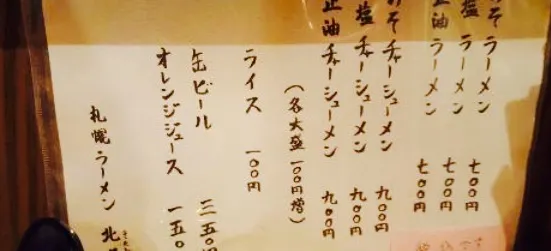 みそラーメン 七〇〇円
塩ラーメン 七〇〇円
正油ラーメン 七〇〇円
みそチャーシューメン 九〇〇円
塩チャーシューメン 九〇〇円
正油チャーシューメン 九〇〇円
(各大盛一〇〇円増)
ライス 一〇〇円
缶ビール 二五〇
オレンジジュース 一五〇
札幌ラーメン 北